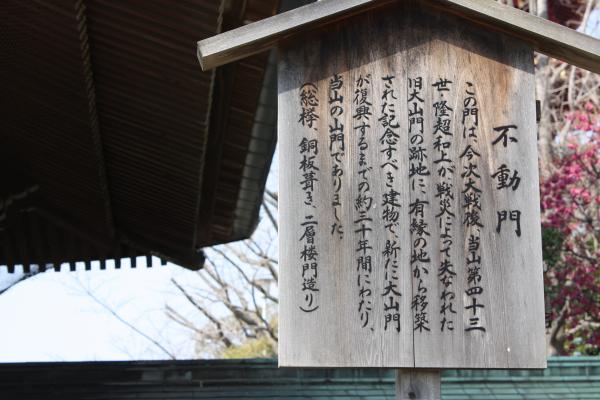 不動門
この門は、今次大戦後、当山第四十三
世・隆超和上が戦災によって失なわれた
旧大山門の跡地に、有縁の地から移築
された記念すべき建物で、新たに大山門
が復興するまでの約三十年間にわたり、
当山の山門でありました。
（総欅、銅板葺き、二層楼門造り）